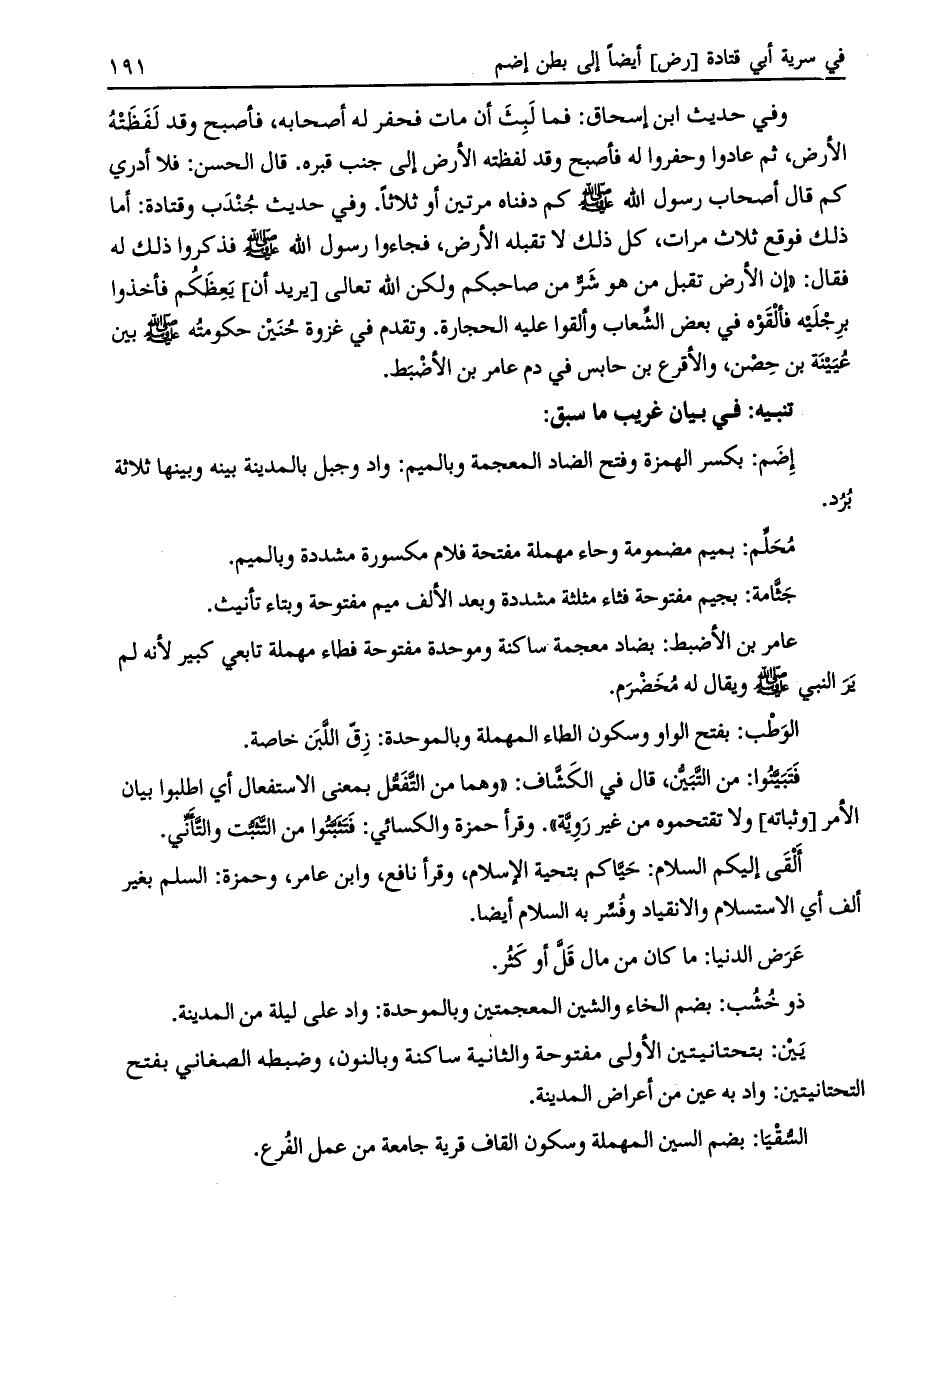 في سرية أبي قتادة [رض] أيضاً إلى بطن إضم ١٩١
وفي حديث ابن إسحاق: فما لَبِثَ أن مات فحفر له أصحابه، فأصبح وقد لَفَظَتْهُ
الأرض، ثم عادوا وحفروا له فأصبح وقد لفظته الأرض إلى جنب قبره. قال الحسن: فلا أدري
كم قال أصحاب رسول الله ﷺ كم دفناه مرتين أو ثلاثاً. وفي حديث جُنْدَب وقتادة: أما
ذلك فوقع ثلاث مرات، كل ذلك لا تقبله الأرض، فجاءوا رسول الله ﷺ فذكروا ذلك له
فقال: «إن الأرض تقبل من هو شَرٌّ من صاحبكم ولكن الله تعالى [يريد أن] يَعِظَكُم فأخذوا
برِجْلَيْه فألْقَوْه في بعض الشِّعاب وألقوا عليه الحجارة. وتقدم في غزوة حُنَيْن حكومتُه ﷺ بين
عُيَيْنَة بن حِصْن، والأقرع بن حابس في دم عامر بن الأضْبَط.
تنبيه: في بيان غريب ما سبق:
إِضَم: بكسر الهمزة وفتح الضاد المعجمة وبالميم: واد وجبل بالمدينة بينه وبينها ثلاثة
بُرُد.
مُحَلِّم: بميم مضمومة وحاء مهملة مفتحة فلام مكسورة مشددة وبالميم.
جَثَّامة: بجيم مفتوحة فثاء مثلثة مشددة وبعد الألف ميم مفتوحة وبتاء تأنيث.
عامر بن الأضبط: بضاد معجمة ساكنة وموحدة مفتوحة فطاء مهملة تابعي كبير لأنه لم
يَرَ النبي ﷺ ويقال له مُخَضْرَم.
الوَطْب: بفتح الواو وسكون الطاء المهملة وبالموحدة: زِقّ اللَّبَن خاصة.
فَتَبَيَّنُوا: من التَّبَيُّن، قال في الكَشَّاف: «وهما من التَّفَعُّل بمعنى الاستفعال أي اطلبوا بيان
الأمر [وثباته] ولا تقتحموه من غير رَوِيَّة». وقرأ حمزة والكسائي: فَتَثَبَّتُوا من التَّثَبُّت والتَّأَنِّي.
أَلْقَى إليكم السلام: حَيَّاكم بتحية الإسلام، وقرأ نافع، وابن عامر، وحمزة: السلم بغير
ألف أي الاستسلام والانقياد وفُسِّر به السلام أيضا.
عَرَض الدنيا: ما كان من مال قَلَّ أو كَثُر.
ذو خُشُب: بضم الخاء والشين المعجمتين وبالموحدة: واد على ليلة من المدينة.
يَيْن: بتحتانيتين الأولى مفتوحة والثانية ساكنة وبالنون، وضبطه الصغاني بفتح
التحتانيتين: واد به عين من أعراض المدينة.
السُّقْيَا: بضم السين المهملة وسكون القاف قرية جامعة من عمل الفُرع.